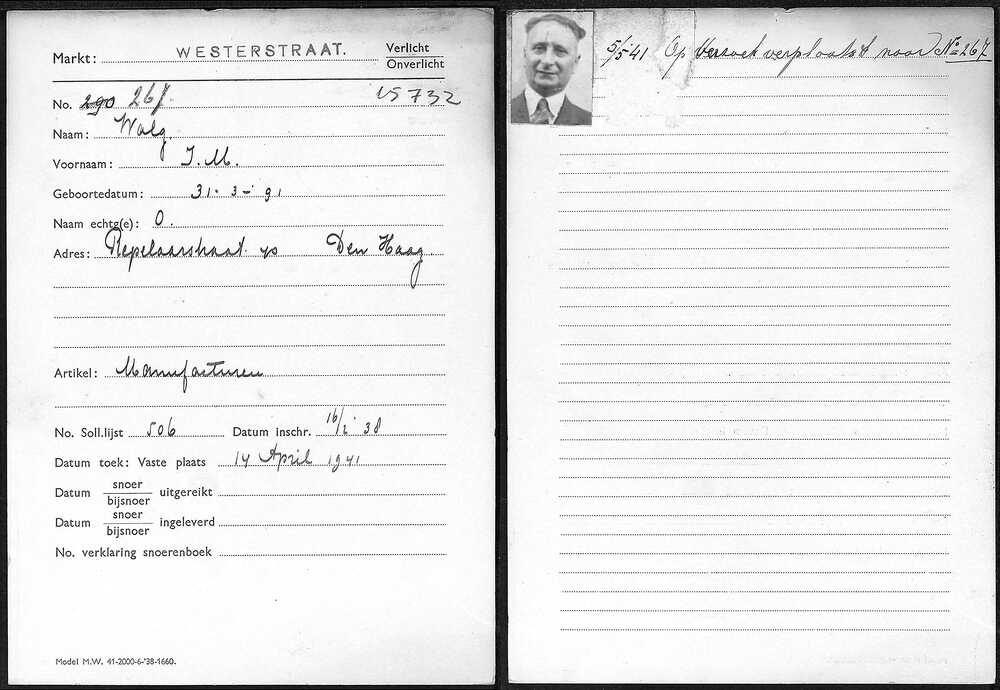 Markt: WESTERSTRAAT. Verlicht
Onverlicht
No. 290 267. 45732
Naam: Walg.
Voornaam: J. M.
Geboortedatum: 31-3-91
Naam echtg(e): O.
Adres: Repelaarstraat 90 Den Haag
Artikel: Manufacturen
No. Soll.lijst 506 Datum inschr. 16/2 '38
Datum toek: Vaste plaats 14 April 1941
Datum snoer
bijsnoer uitgereikt
Datum snoer
bijsnoer ingeleverd
No. verklaring snoerenboek
Model M.W. 41-2000-6-'38-1660.
5/5 41 Op verzoek verplaatst naar No 267